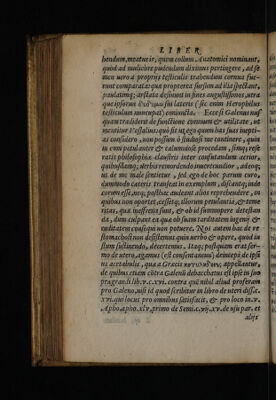 LIBER
bendum, meatus ie, quem collum. Anatomici nominant,
quod ad mulicbre pudendum diximus pertingere, ad se
men uero à proprijs testiculis trahendum cornua fue-
runt comparata: quæ propterea sursum ad ilia spectant,
paulatimq; arctata desinunt in fines angustissimos, utra
que ipsorum sui lateris (sic enim Herophilus
testiculum nuncupat) coniuncta. Ecce si Galenus nus
quam tradiderit de functione cornuum & utilitate, id
mentitur Vesalius: quo sit ut ego quum has suas ineptias
considero, non possum ò studiose non commouere, quin
in eum petulanter & calumniose procedam, sinuq; refe
ratis philosophiæ claustris inter confutandum acrior,
quinimò uerbis remordendo mucrens
us de me male sentitur, sed ego de hoc parum curo,
dummodo cæteris transeat in exemplum, discantq; inde
coram esse, si posthac audeant alios reprehendere, in
quibus non oportet, cessetq; illorum petulantia, & teme
ritas, quæ inessrenis sunt, & ab id summopere detestan
da, dum culpant ea quæ ob suum tarditatem ingenij &
ruditatem consequi non potuere. Nos autem hac de re
stomachosi non desistemus quin uerbo & opere, quod in
sum sustinendo, decertemus. Itaq; postquam erat ser-
mo de utero, agamus (est consentaneum) deinceps de ip
sis acetabulis, quæ à Græcis appellantur,
de quibus etiam còtra Galenū debacchatus est ipse in suo
prægrandi lib.v.c.xvi. contra quē nihil aliud proferam
pro Galeno, nisi id quod scribitur in libro de uteri diss.c.
xvi. qui locus pro omnibus satisfacit, & pro loco in.v.
Apho.apho.xlv. primo de Semi.c.vij.xv. de usu par. et
alijs